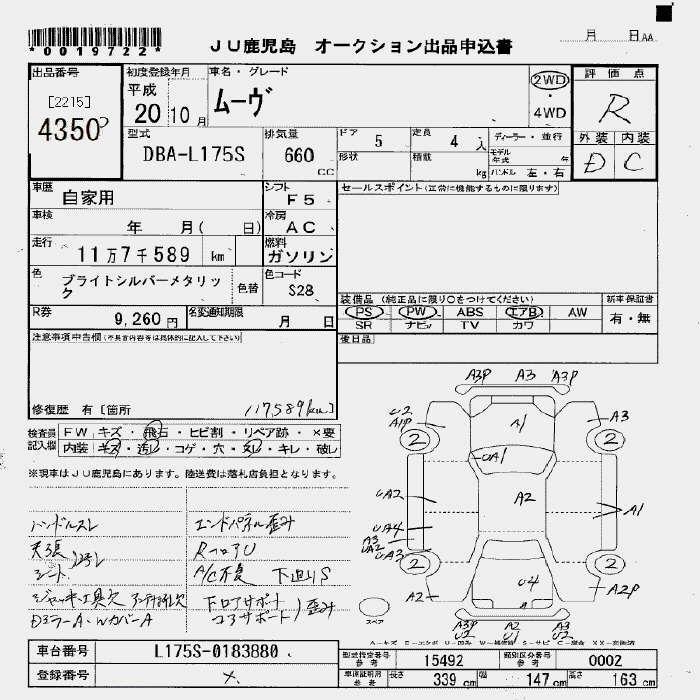 *0019722*
JU鹿児島 オークション出品申込書
月 日AA
出品番号
[2215]
4350
初度登録年月
平成
20 10月
車名・グレード
ムーヴ
2WD
・
4WD
評価点
R
外装 内装
D C
型式
DBA-L175S
排気量
660
CC
ドア 5
定員 4 人
ディーラー・並行
形状
積載 kg
モデル年式 年
ハンドル 左・右
車歴
自家用
シフト
F5
セールスポイント(正常に機能するものに限ります)
車検
年 月( 日)
冷房
AC
走行
11万7千589 km
燃料
ガソリン
色
ブライトシルバーメタリック
色替
色コード
S28
装備品 (純正品に限り○をつけてください)
新車保証書
PS PW ABS エアB AW
有・無
SR ナビ TV カワ
R券
9,260円
名変通知期限
月 日
後日品
注意事項申告欄(不具合内容等は具体的に記入して下さい)
修復歴 有[箇所
117589km
検査員記入欄
FW キズ・飛石・ヒビ割・リペア跡・×要
内装 キズ・汚レ・コゲ・穴・スレ・キレ・破レ
※現車はJU鹿児島にあります。陸送費は落札店負担となります。
ハンドルスレ
天張
シート 汚レ
ジャッキ・工具欠
Dミラー A・WカバーA
エンドパネル歪み
RフロアU
A/C不良 下廻りS
下ロアサポート
コアサポート 歪み
A3P A3 A3P
U2
A1P
A3
2 2
A1
UA1
UA2
A2
A1
UA4
A3
UA2
UA3
2 2
U4
A2
A2P
A
A3P
U2
A2
U1
A3P
U2
スペア
車台番号
L175S-0183880
登録番号
×
型式指定番号
参考
15492
類別区分番号
参考
0002
車庫証明用
参考
長さ 339cm 幅 147cm 高さ 163cm